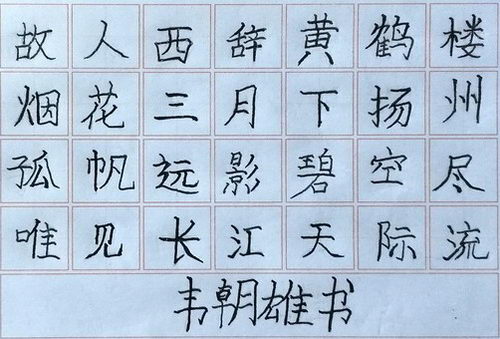 故人西辞黄鹤楼
烟花三月下扬州
孤帆远影碧空尽
唯见长江天际流
韦朝雄书